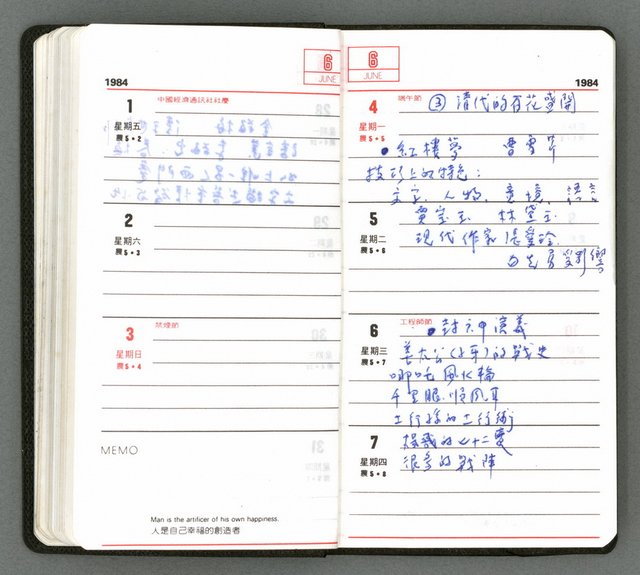 1984
6
JUNE
1
星期五
農5•2
中國經濟通訊社社慶
2
星期六
農5•3
3
星期日
農5•4
禁煙節
MEMO
Man is the artificer of his own happiness.
人是自己幸福的創造者
6
JUNE
1984
4
星期一
農5•5
端午節
③ 清代的百花盛開
•紅樓夢 曹雪芹
技巧上的特色:
文字、人物、意境、語言
5
星期二
農5•6
賈宝玉 林黛玉
現代作家張愛玲、
白先勇受影響
6
星期三
農5•7
工程師節
•封神演義
姜太公(子牙)的戰史
哪吒風火輪
千里眼、順風耳
土行孫的土行術
7
星期四
農5•8
楊戩的七十二變
很多的戰陣